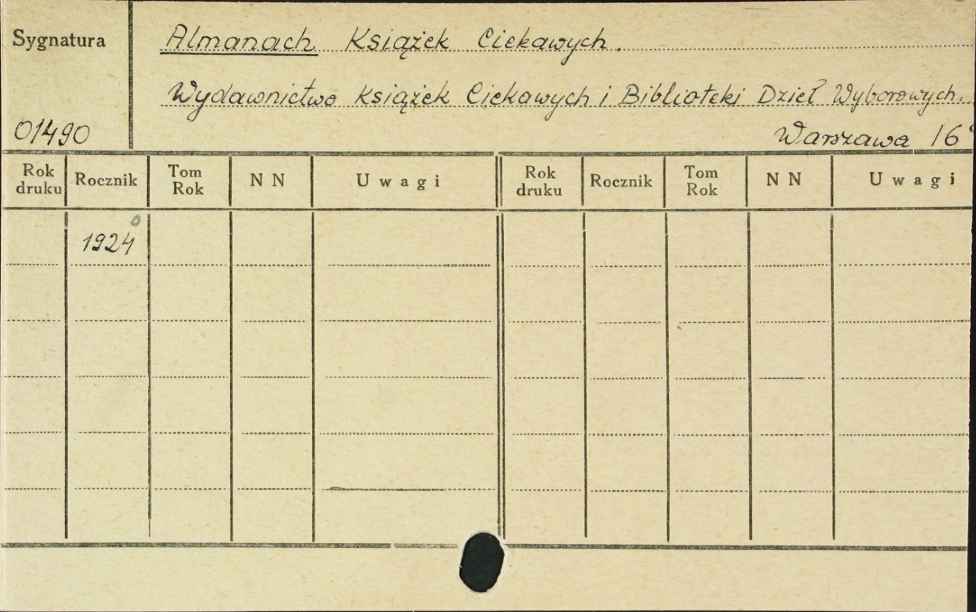 Sygnatura
Almanach Książek Ciekawych.
Wydawnictwo Książek Ciekawych i Biblioteki Dzieł Wyborowych.
01490
Warszawa 16°
Rok druku Rocznik Tom Rok NN Uwagi Rok druku Rocznik Tom Rok NN Uwagi
1924